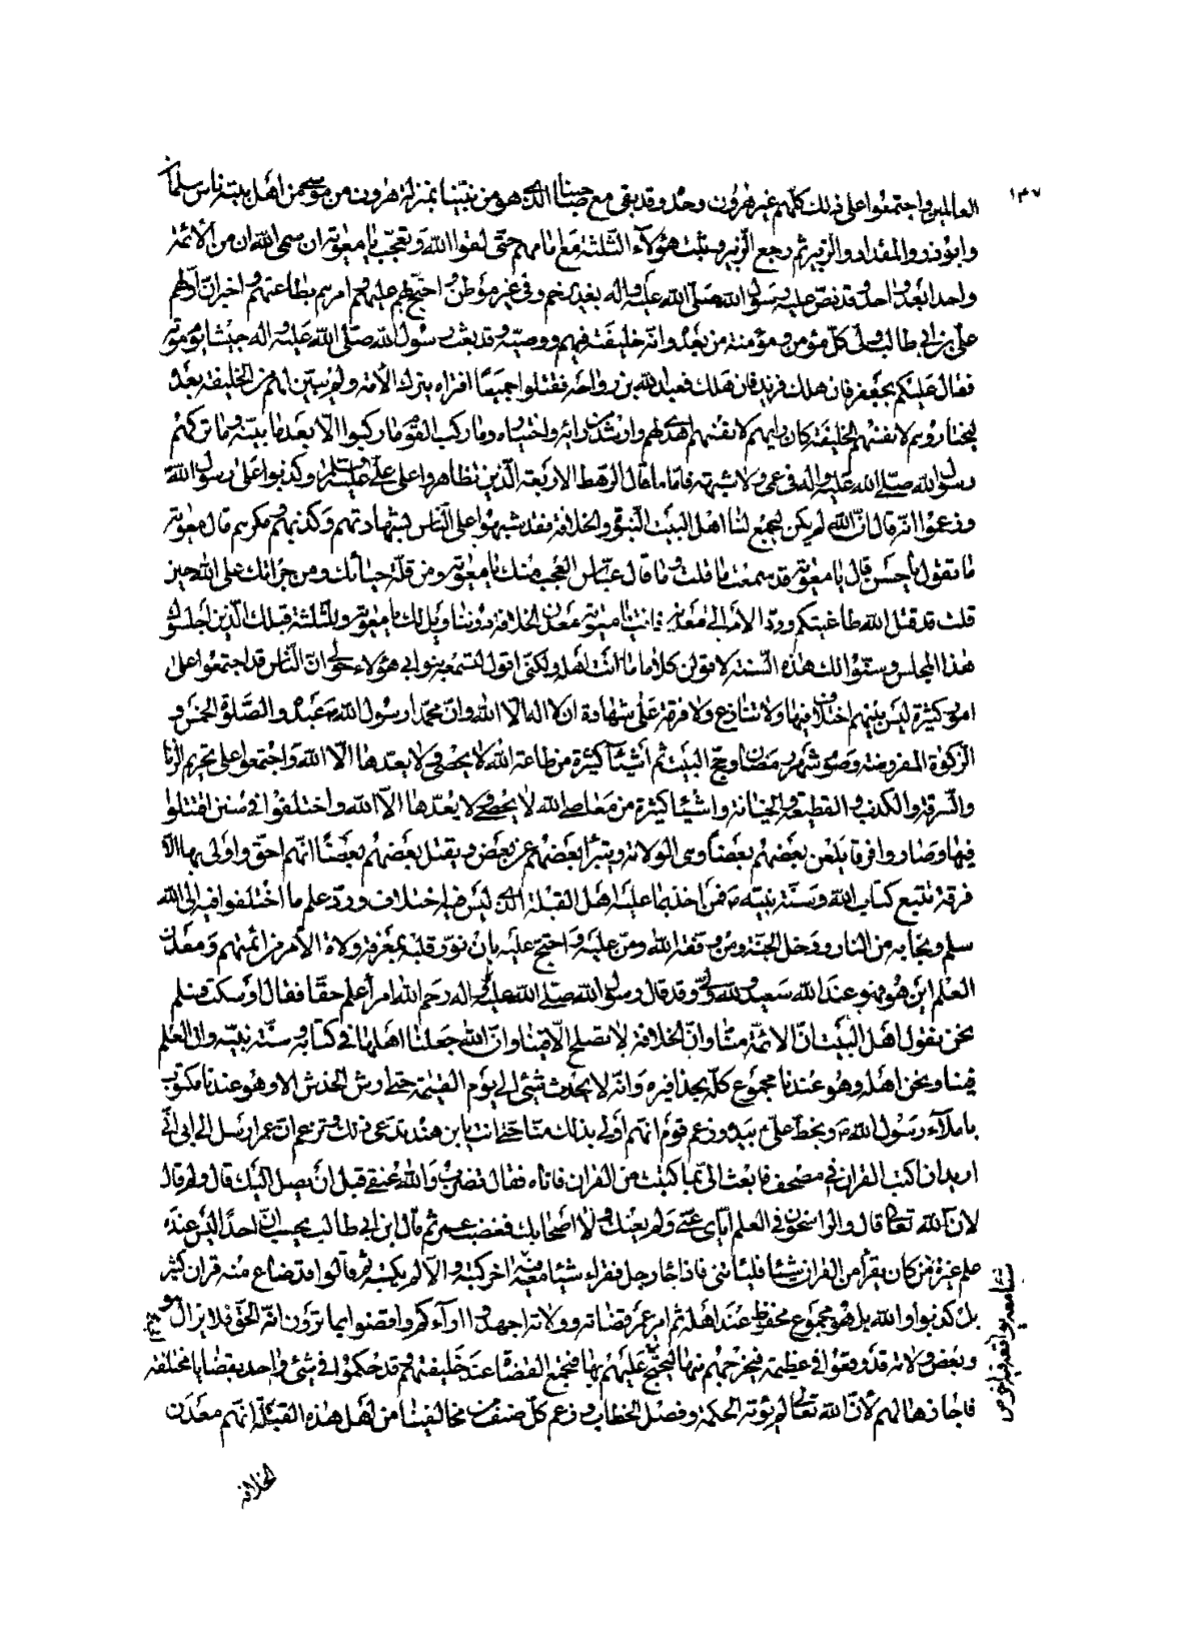 ١٣٧
العالمين واجتمعوا على ذلك كلهم غير هرون وحده وقد بقى مع صاحبنا الذى هو من نبينا بمنزلة هرون من موسى من اهل بيته ناس سلمان
وابوذر والمقداد والزبير ثم رجع الزبير وثبت هؤلاء الثلثة مع امامهم حتى لقوا الله وتعجب يا معوية ان سمى الله من الائمة
واحدا بعد واحد وقد نص عليهم رسول الله صلى الله عليه واله بغدير خم وفى غير موطن واحتج بهم عليهم وامرهم بطاعتهم واخبر ان اولهم
على بن ابى طالب ولى كل مؤمن ومؤمنة من بعده وانه خليفته فيهم ووصيه وقد بعث رسول الله صلى الله عليه واله جيشا يوم موتة
فقال عليكم بجعفر فان هلك فزيد فان هلك فعبد الله بن رواحة فقتلوا جميعا افتراه يترك الامة ولم يبين لهم من الخليفة بعده
ليختاروا هم لانفسهم الخليفة كان رايهم لانفسهم اهدى لهم وارشد من رايه واختياره وما ركب القوم ما ركبوا الا بعد ما بينه وما تركهم
رسول الله صلى الله عليه واله فى عمى ولا شبهة فاما ما قال الرهط الاربعة الذين تظاهروا على على عليه السلام وكذبوا على رسول الله
وزعموا انه قال ان الله لم يكن ليجمع لنا اهل البيت النبوة والخلافة فقد شبهوا على الناس بشهادتهم وكذبهم ومكرهم قال معوية
ما تقول يا حسن قال يا معوية قد سمعت ما قلت وما قال ابن عباس العجب منك يا معوية ومن قلة حيائك ومن جرأتك على الله حين
قلت قد قتل الله طاغيتكم ورد الامر الى معدنه فانت يا معوية معدن الخلافة دوننا ويل لك يا معوية وللثلثة قبلك الذين اجلسوك
هذا المجلس وسنوا لك هذه السنة لاقولن كلاما ما انت اهله ولكنى اقول لتسمعه بنو ابى هؤلاء حولى ان الناس قد اجتمعوا على
امور كثيرة ليس بينهم اختلاف فيها ولا تنازع ولا فرقة على شهادة ان لا اله الا الله وان محمدا رسول الله وعبده والصلوة الخمس و
الزكوة المفروضة وصوم شهر رمضان وحج البيت ثم اشياء كثيرة من طاعة الله لا يحصى ولا يعدها الا الله واجتمعوا على تحريم الزنا
والسرقة والكذب والقطيعة والخيانة واشياء كثيرة من معاصى الله لا يحصى ولا يعدها الا الله واختلفوا فى سنن اقتتلوا
فيها وصاروا فرقا يلعن بعضهم بعضا وهى الولاية ويتبرأ بعضهم عن بعض ويقتل بعضهم بعضا ايهم احق واولى بها الا
فرقة تتبع كتاب الله وسنة نبيه ص فمن اخذ بما عليه اهل القبلة الذى ليس فيه اختلاف ورد علم ما اختلفوا فيه الى الله
سلم ونجا به من النار ودخل الجنة ومن وفقه الله ومن عليه واحتج عليه بان نور قلبه بمعرفة ولاة الامر من ائمتهم ومعدن
العلم اين هو فهو عند الله سعيد ولله ولى وقد قال رسول الله صلى الله عليه واله رحم الله امرأ علم حقا فقال او سكت فسلم
نحن نقول اهل البيت ان الائمة منا وان الخلافة لا تصلح الا فينا وان الله جعلنا اهلها فى كتابه وسنة نبيه وان العلم
فينا ونحن اهله وهو عندنا مجموع كله بحذافيره وانه لا يحدث شئ الى يوم القيمة حتى ارش الخدش الا وهو عندنا مكتوب
باملاء رسول الله ص وبخط على بيده وزعم قوم انهم اولى بذلك منا حتى انت يا بن هند تدعى ذلك وتزعم ان عمر ارسل الى ابى انى
اريد ان اكتب القران فى مصحف فابعث الى بما كتبت من القران فاتاه فقال تضرب والله عنقى قبل ان يصل اليك قال ولم قال
لان الله تعالى قال والراسخون فى العلم اياى عنى ولم يعنك ولا اصحابك فغضب عمر ثم قال ابن ابى طالب يحسب ان احدا ليس عنده
علم غيره من كان يقرأ من القران شيئا فليأتنى فاذا جاء رجل فقراء شيئا معه فيه اخر كتبه والا لم يكتبه ثم قالوا قد ضاع منه قران كثير
بل كذبوا والله بل هو مجموع محفوظ عند اهله ثم امر عمر قضاته وولاته اجهدوا اراءكم واقضوا بما ترون انه الحق فلا يزال هو
وبعض ولاته قد وقعوا فى عظيمة فيخرجهم منها ابى ليحتج عليهم بها فيجمع القضاة عند خليفتهم وقد حكموا فى شئ واحد بقضايا مختلفة
فاجازها لهم لان الله تعالى لم يؤته الحكمة وفصل الخطاب وزعم كل صنف من مخالفينا من اهل هذه القبلة انهم معدن
الخلافة